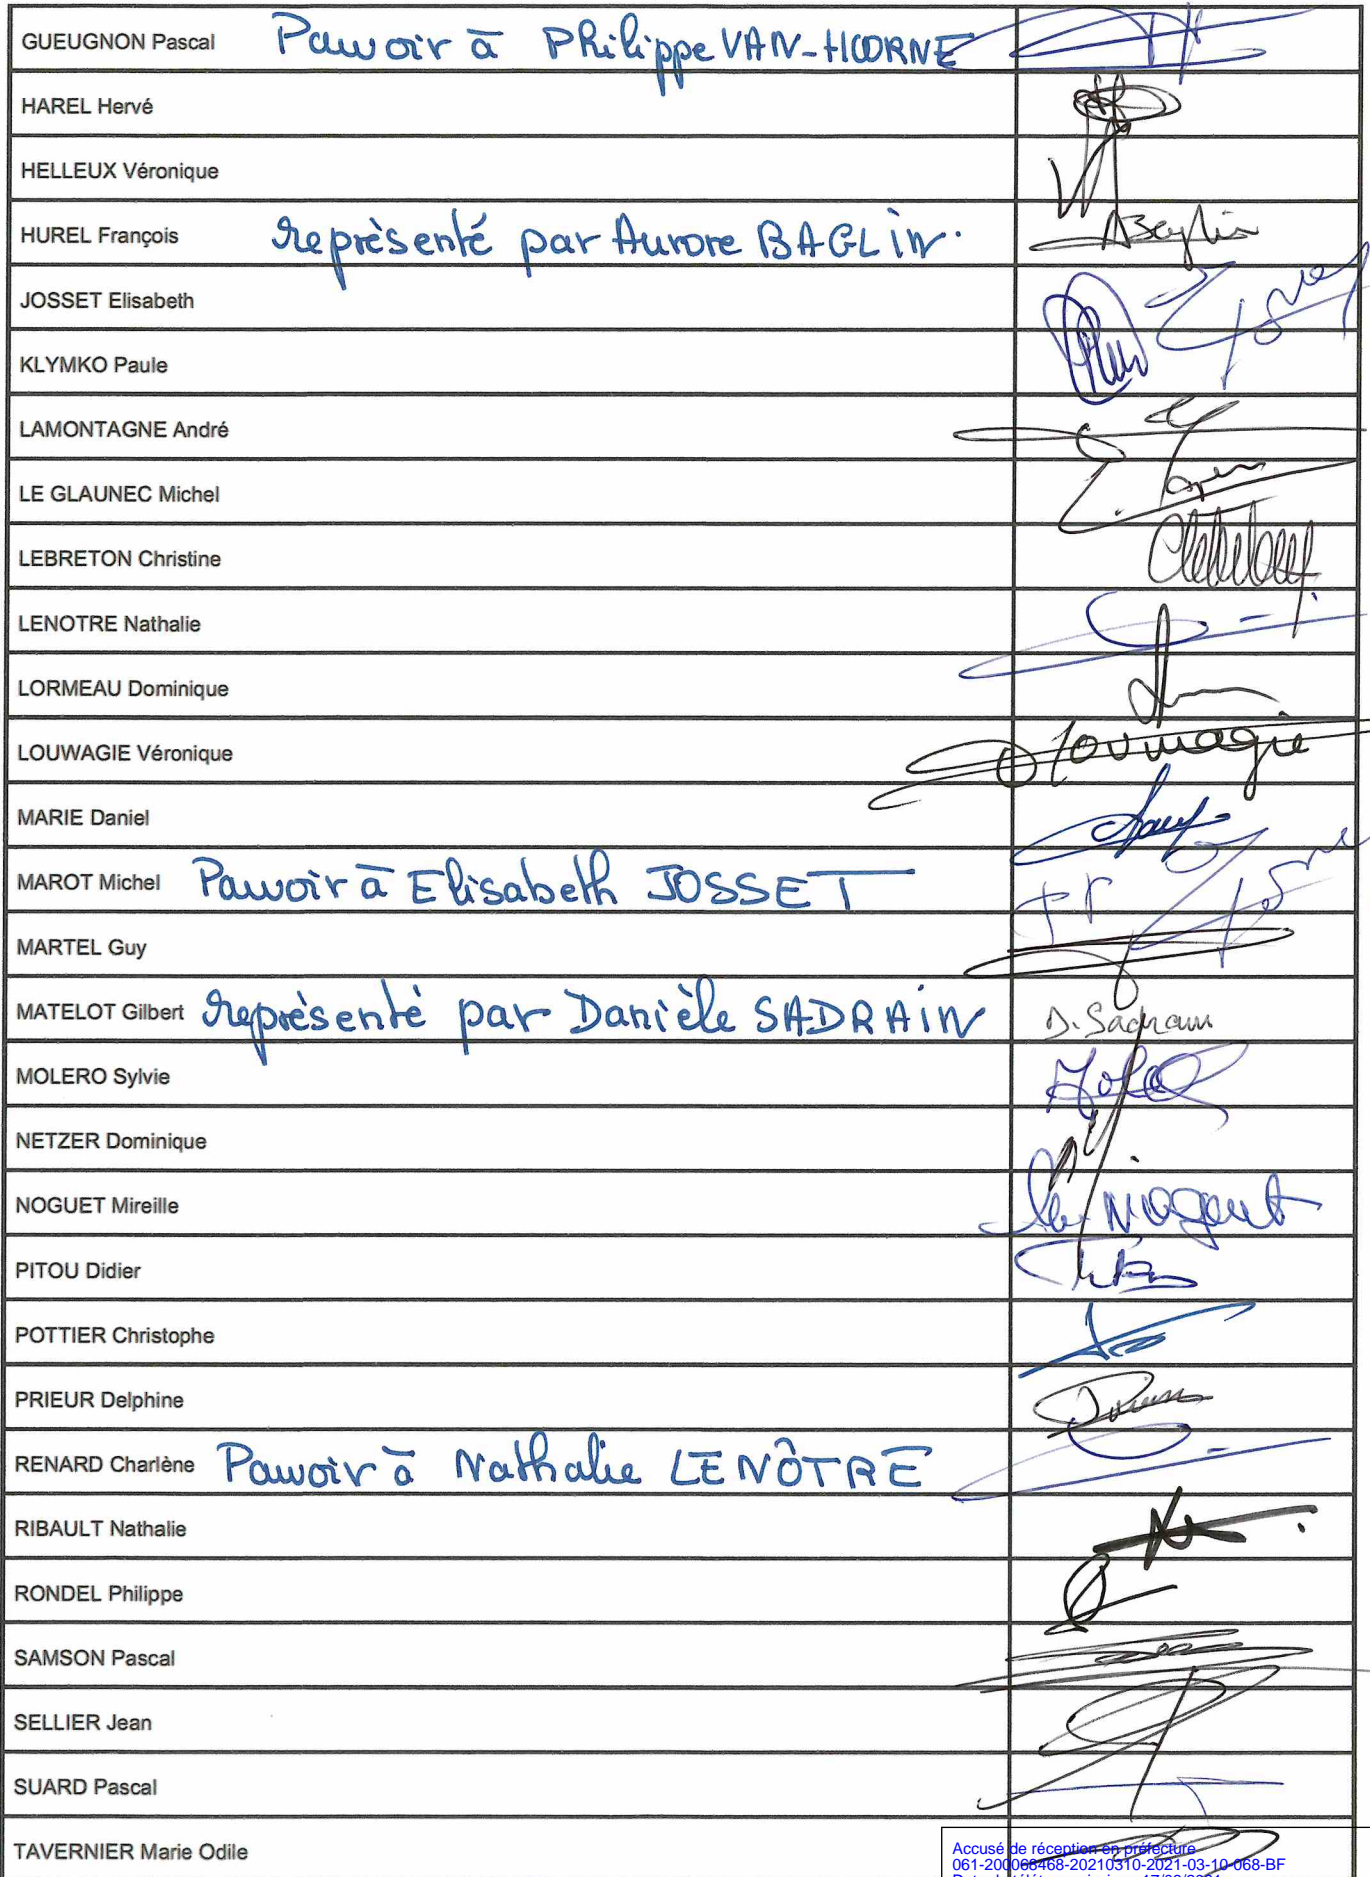 GUEUGNON Pascal Pouvoir à Philippe VAN-HOORNE
HAREL Hervé
HELLEUX Véronique
HUREL François représenté par Aurore BAGLIN.
ABaglin
JOSSET Elisabeth
KLYMKO Paule
LAMONTAGNE André
LE GLAUNEC Michel
LEBRETON Christine
LENOTRE Nathalie
LORMEAU Dominique
LOUWAGIE Véronique
Louwagie
MARIE Daniel
MAROT Michel Pouvoir à Elisabeth JOSSET
MARTEL Guy
MATELOT Gilbert représenté par Danièle SADRAIN D. Sadrain
MOLERO Sylvie
NETZER Dominique
NOGUET Mireille
PITOU Didier
POTTIER Christophe
PRIEUR Delphine
RENARD Charlène Pouvoir à Nathalie LENÔTRE
RIBAULT Nathalie
RONDEL Philippe
SAMSON Pascal
SELLIER Jean
SUARD Pascal
TAVERNIER Marie Odile
Accusé de réception en préfecture
061-200068468-20210310-2021-03-10-068-BF